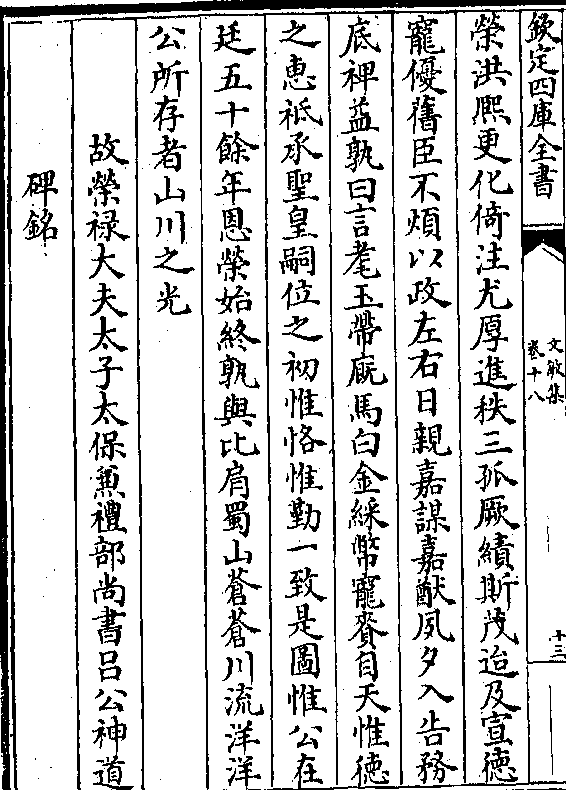 欽定四庫全書
文敏集
卷十八
十三
榮洪熙更化倚注尤厚進秩三孤厥績斯茂迨及宣徳
寵優舊臣不煩以政左右日親嘉謀嘉猷夙夕入告務
底裨益孰曰言耄玉帶廐馬白金綵幣寵賚自天惟徳
之恵祗承聖皇嗣位之初惟恪惟勤一致是圖惟公在
廷五十餘年恩榮始終孰與比肩蜀山蒼蒼川流洋洋
公所存者山川之光
故榮禄大夫太子太保兼禮部尚書吕公神道
碑銘